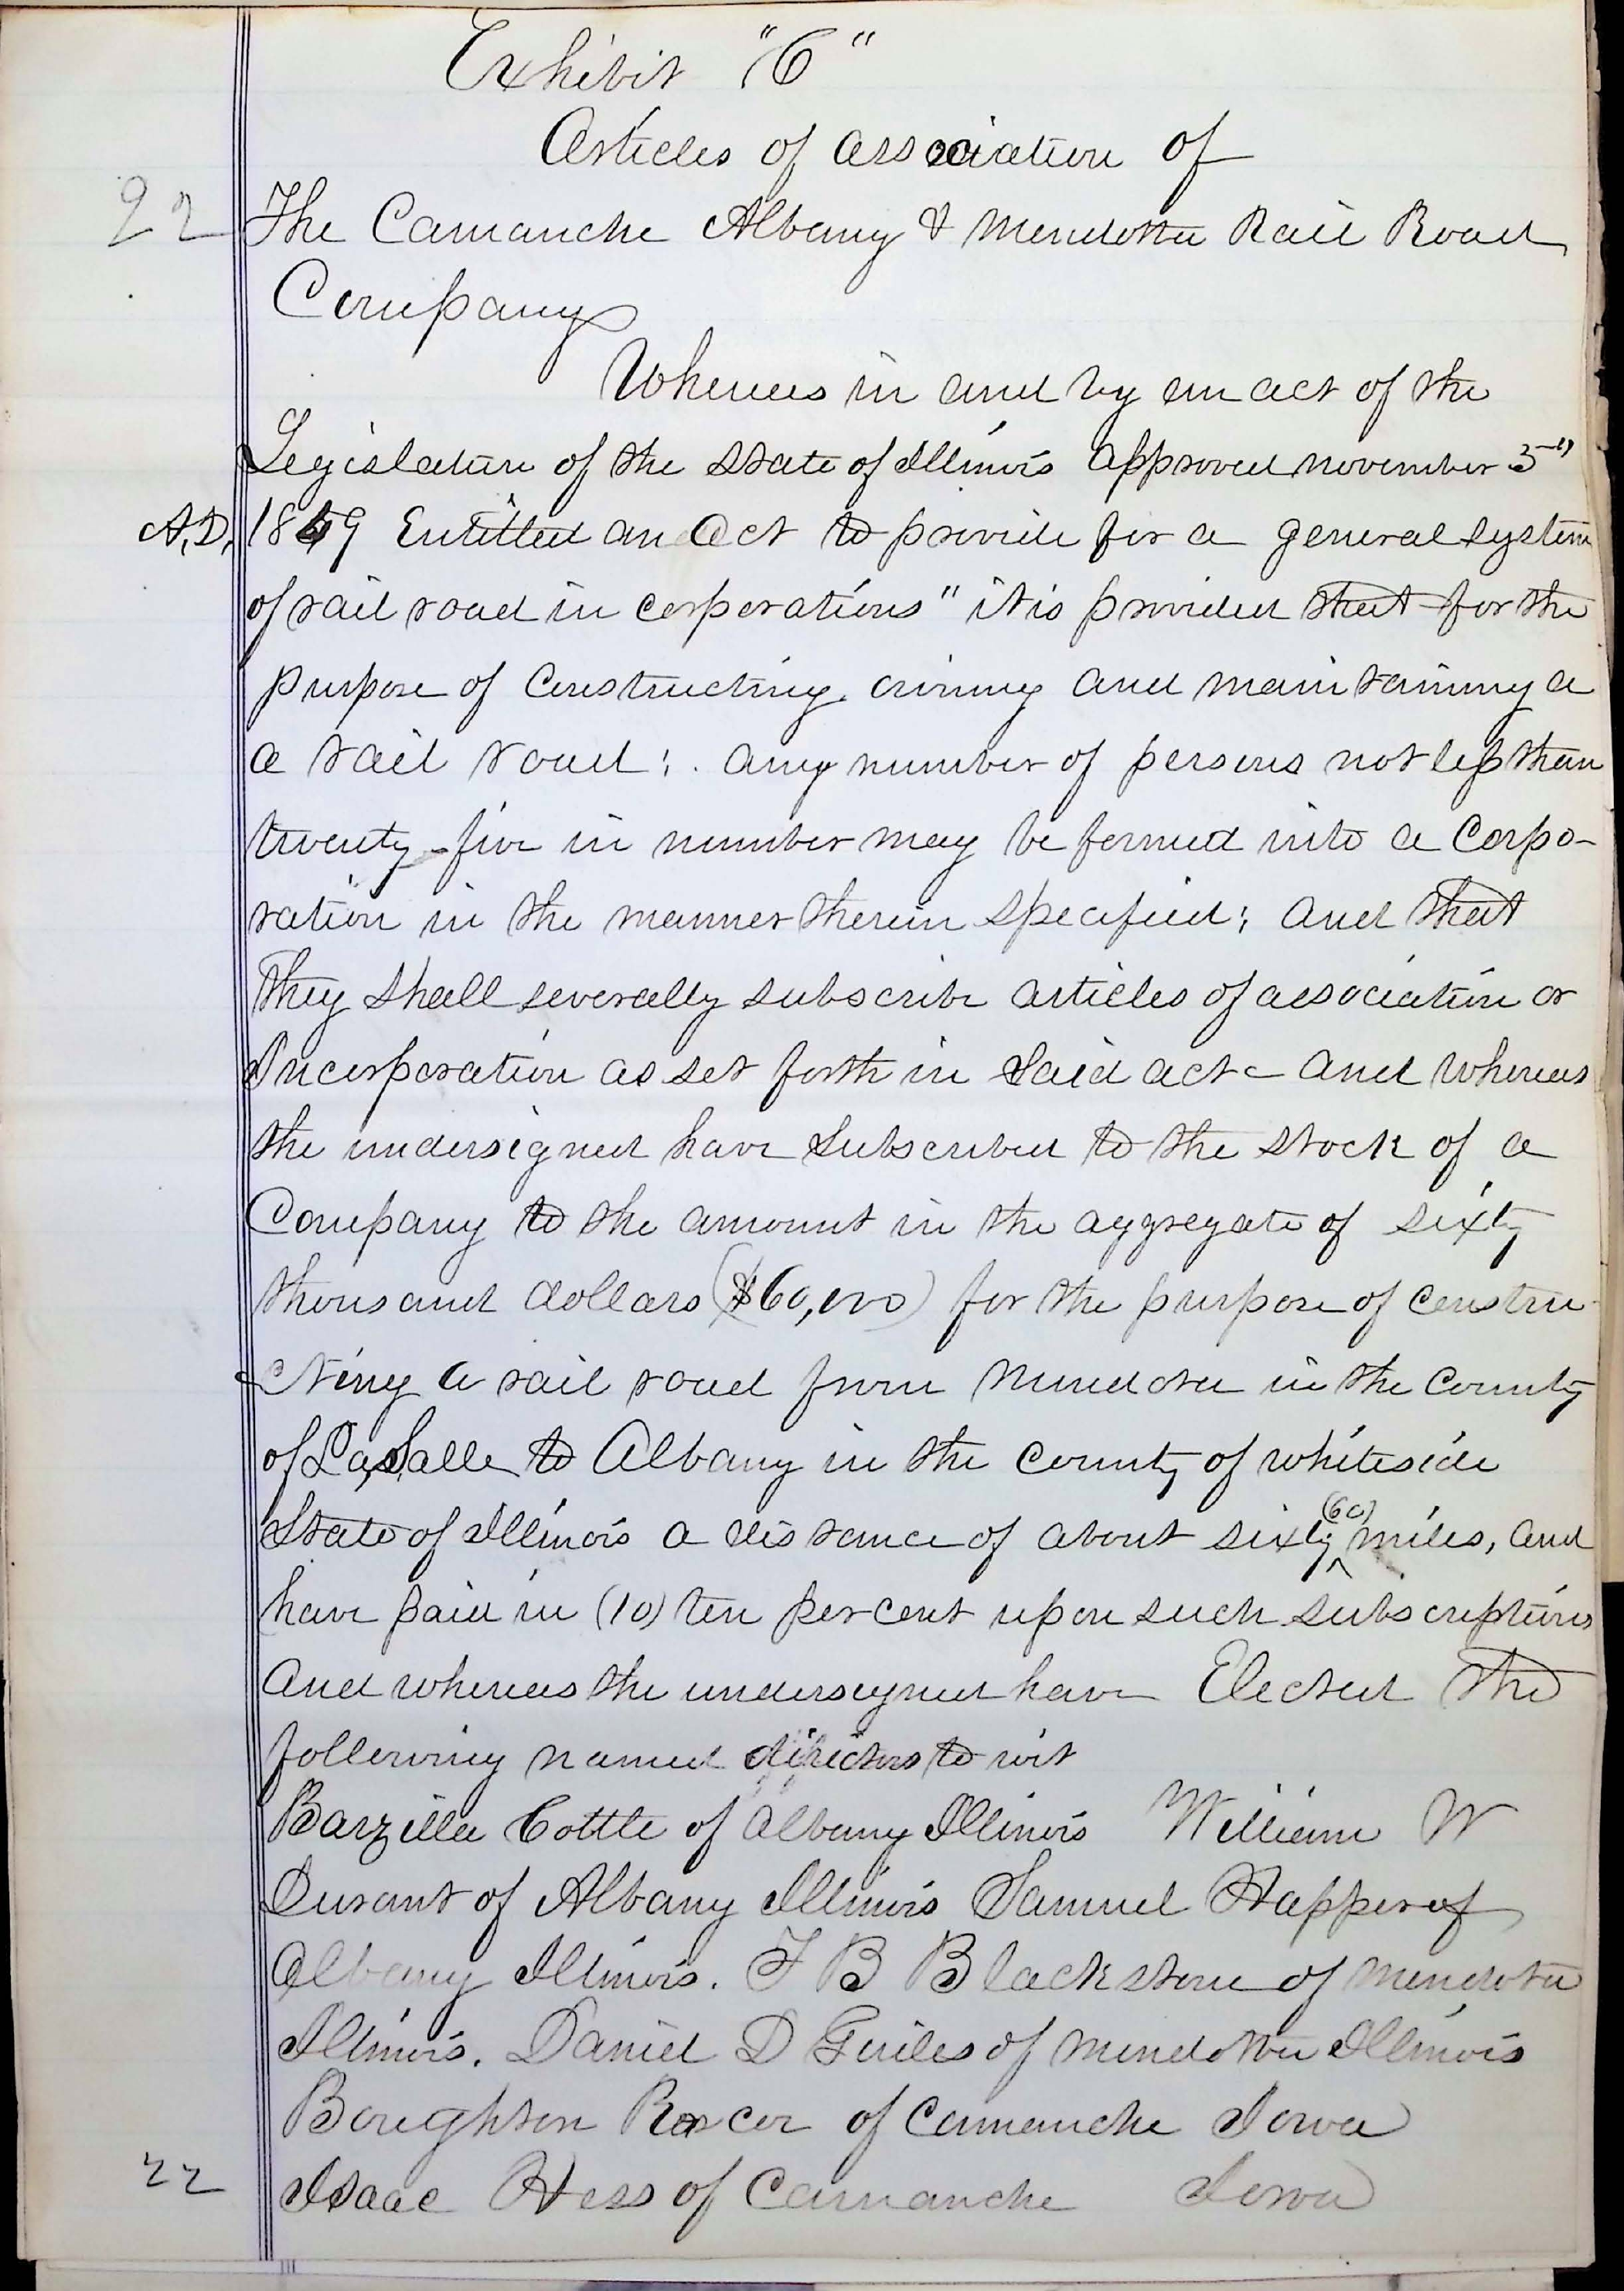 Exhibit "C"
Articles of association of
22 The Camanche Albany & Mendota Rail Road
Company
Whereas in and by an act of the
Legislature of the State of Illinois approved november 5"
A.D. 1849 Entitled an Act to provide for a general system
of rail road in corporations" it is provided that for the
purpose of Constructing owning and maintaining a
a rail road; . any number of persons not less than
twenty-five in number may be formed into a Corpo-
ration in the manner therein specified; and that
they shall severally subscribe articles of association or
Incorporation as set forth in said act - and whereas
the undersigned have subscribed to the stock of a
Company to the amount in the aggregate of sixty
thousand dollars ($60,000) for the purpose of constru-
cting a rail road from Mendota in the County
of LaSalle to Albany in the County of whiteside
State of Illinois a distance of about sixty (60) miles, and
have paid in (10) ten per cent upon such subscriptions
and whereas the undersigned have Elected the
following named directors to wit
Barzilla Cottle of Albany Illinois William W
Durant of Albany Illinois Samuel Happer of
Albany Illinois. F B Blackstone of Mendota
Illinois. Daniel D Guiles of Mendota Illinois
Boughton of Camanche Iowa
22 Isaac Hess of Camanche Iowa